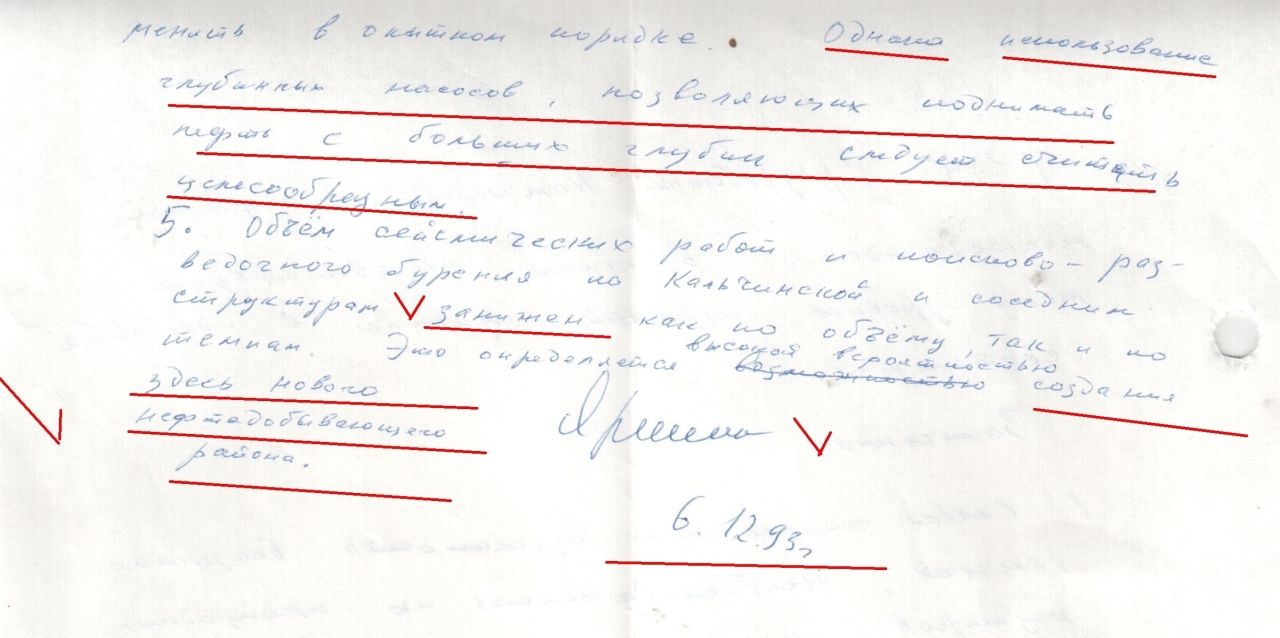 менять в опытном порядке. Однако использование
глубинных насосов, позволяющих поднимать
нефть с больших глубин следует считать
целесообразным.
5. Объём сейсмических работ и поисково-раз-
ведочного бурения по Кальчинской и соседним
структурам занижен как по объёму, так и по
темпам. Это определяется высокой вероятностью возможностью создания
здесь нового
нефтедобывающего
района.
6.12.93г